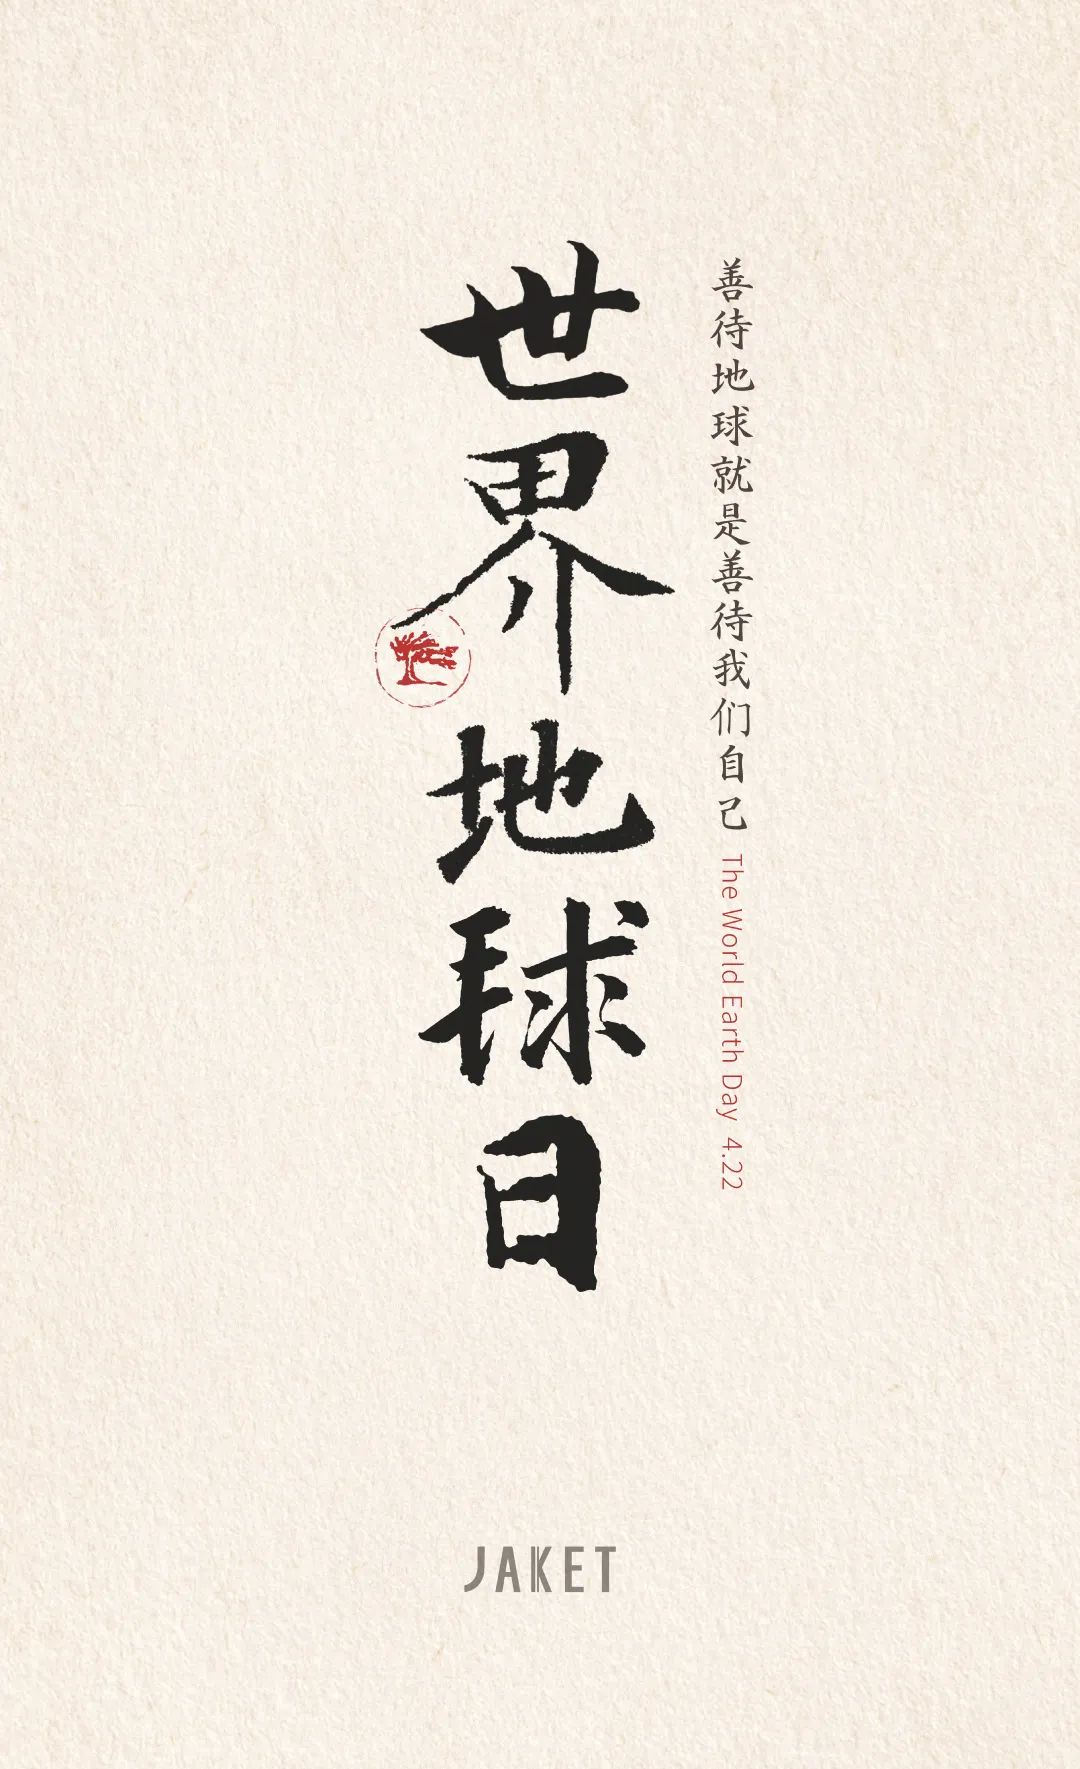 世界地球日
善待地球就是善待我们自己
The World Earth Day 4.22
JAKET